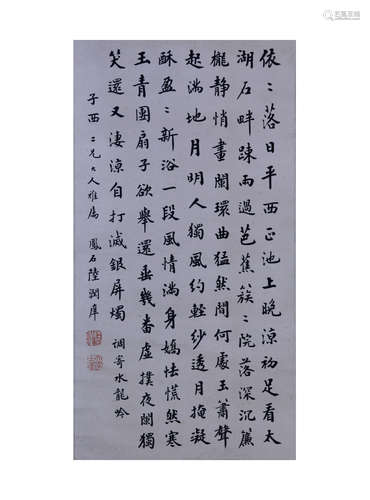 依〻落日平西正池上晚涼初足看太
湖石畔疎雨過芭蕉簇〻院落深沉簾
櫳靜悄畫闌環曲猛然間何處玉簫聲
起滿地月明人獨風約輕紗透月掩凝
酥盈〻新浴一段風情滿身嬌怯慌然寒
玉青團扇子欲舉還垂幾番虛撲夜闌獨
笑還又淒涼自打滅銀屏燭 調寄水龍吟
子西二兄大人雅屬 鳳石陸潤庠